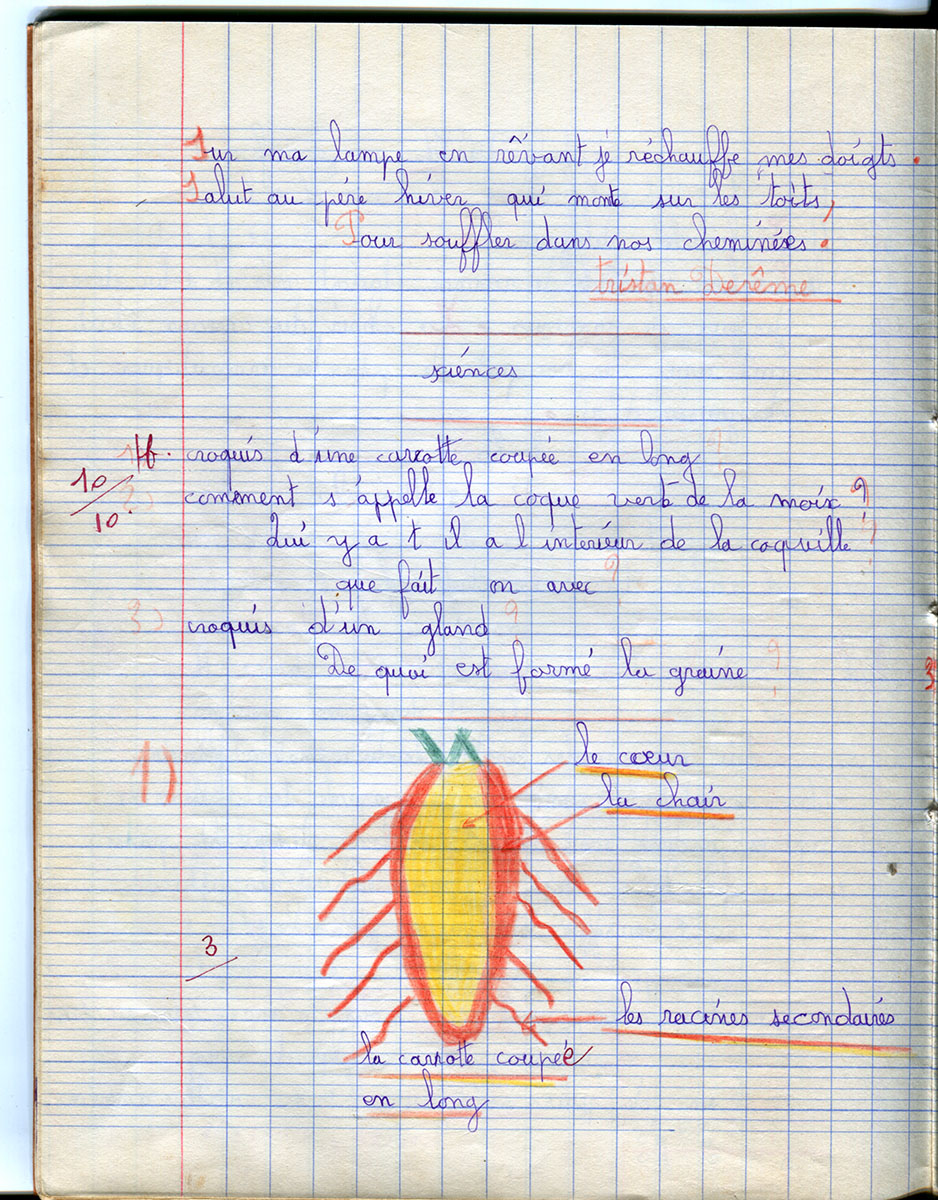 Sur ma lampe en rêvant je réchauffe mes doigts.
Salut au père hiver qui monte sur les toits,
Pour souffler dans nos cheminées.
tristan Derême
sciences
Tb. croquis d'une carotte coupée en long ?
10/10.
2) comment s'appelle la coque verte de la noix ?
Qui y a t il a l intérieur de la coquille ?
que fait on avec ?
3) croquis d'un gland ?
De quoi est formé la graine ?
1)
le coeur
la chair
3
les racines secondaires
la carrotte coupée
en long